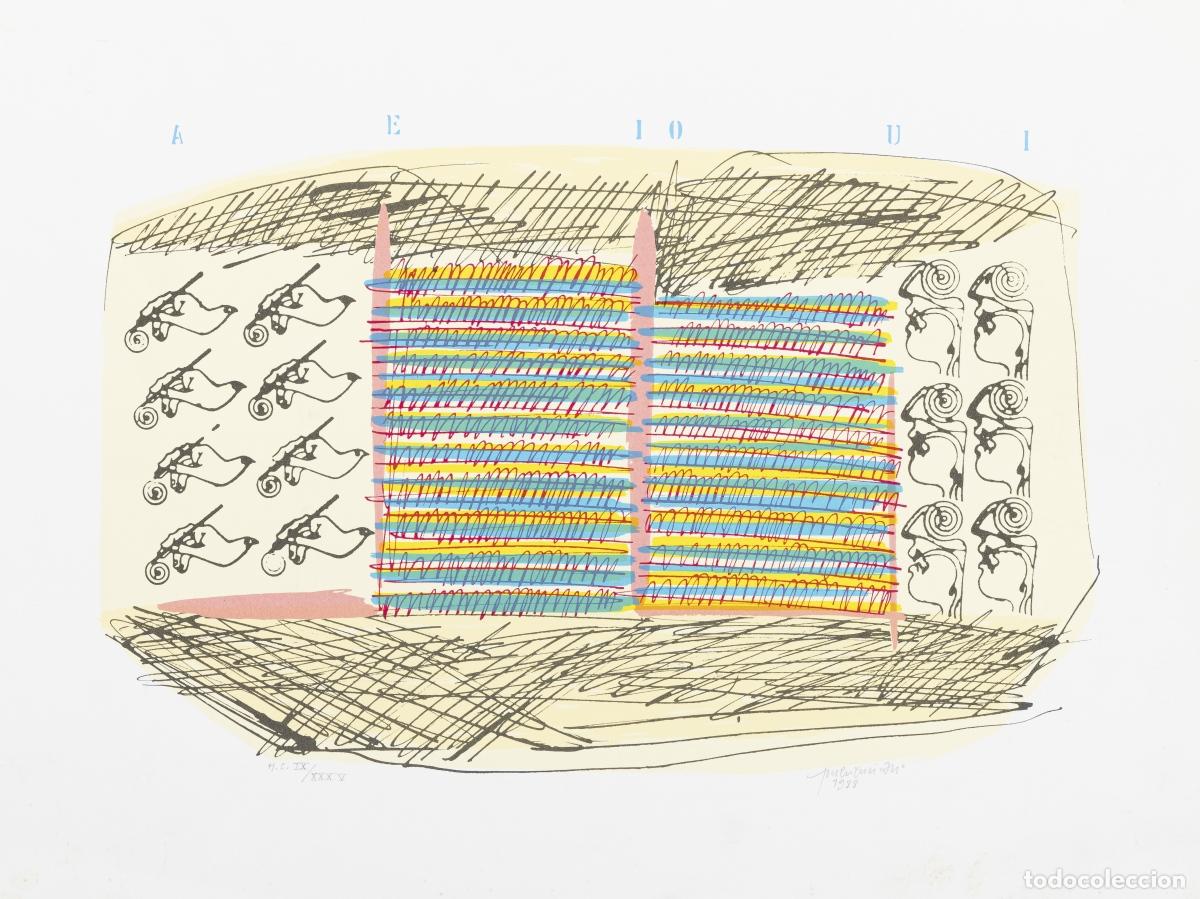 A E I O U I
H.C. IX
/XXX V
1988
todocoleccion